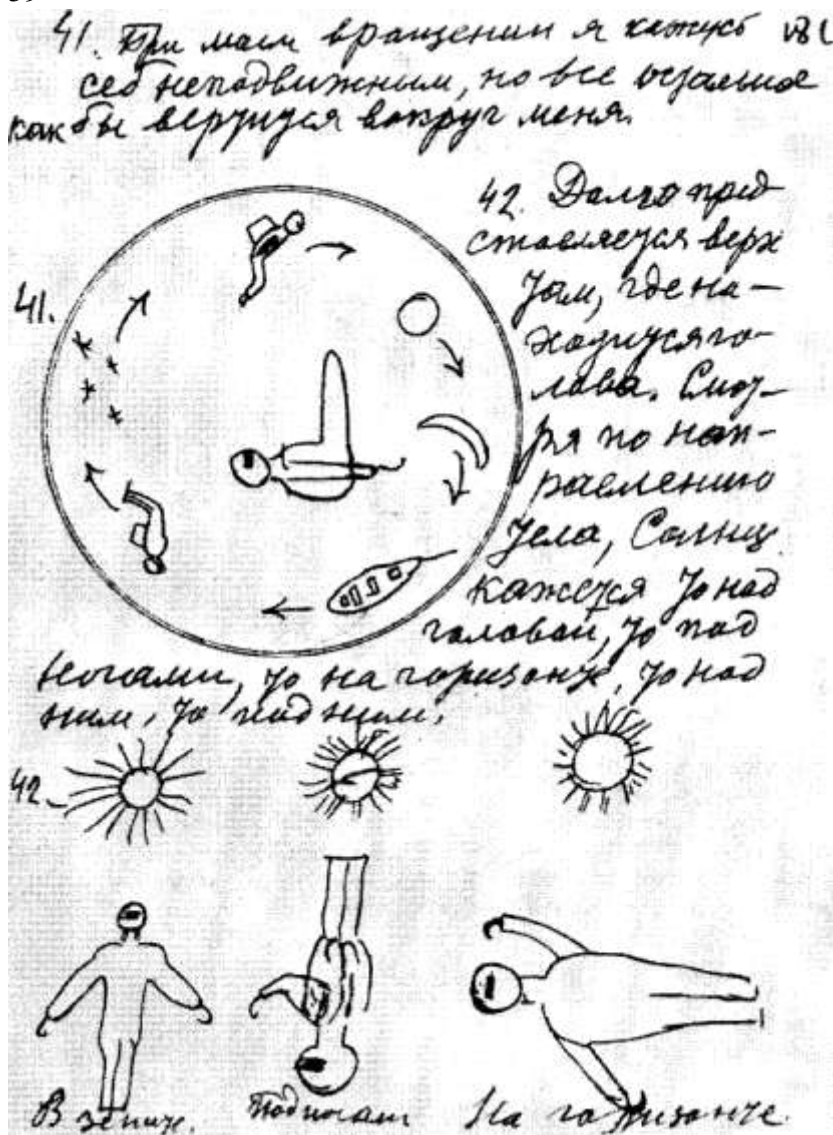 41. При моем вращении я кажусь
себе неподвижным, но все остальное
как бы вертится вокруг меня.
41.
42. Долго пред-
ставляется верх
там, где на-
ходится го-
лова. Смот-
ря по нап-
равлению
тела, Солнце
кажется то над
головой, то под
ногами, то на горизонте, то над
ним, то под ним.
42
В зените. Под ногами На горизонте.